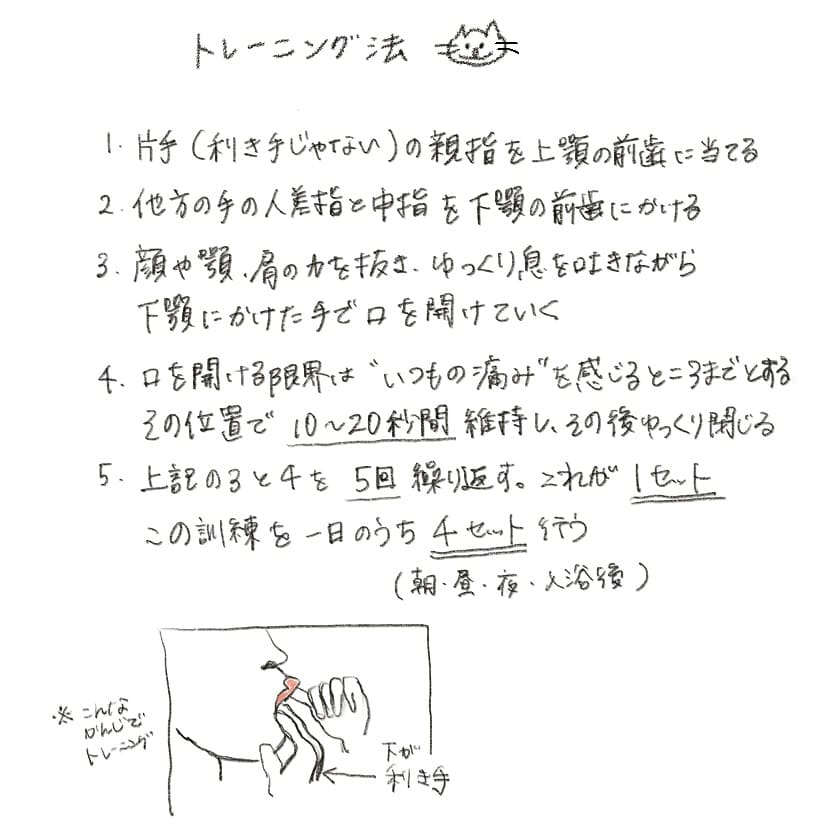 トレーニング法
1. 片手(利き手じゃない)の親指を上顎の前歯に当てる
2. 他方の手の人差指と中指を下顎の前歯にかける
3. 顔や顎、肩の力を抜き、ゆっくり息を吐きながら
下顎にかけた手で口を開けていく
4. 口を開ける限界は"いつもの痛み"を感じるところまでとする
その位置で 10〜20秒間 維持し、その後ゆっくり閉じる
5. 上記の3と4を 5回 繰り返す。これが 1セット
この訓練を一日のうち 4セット 行う
(朝・昼・夜・入浴後)
※こんな
かんじで
トレーニング
下が
利き手